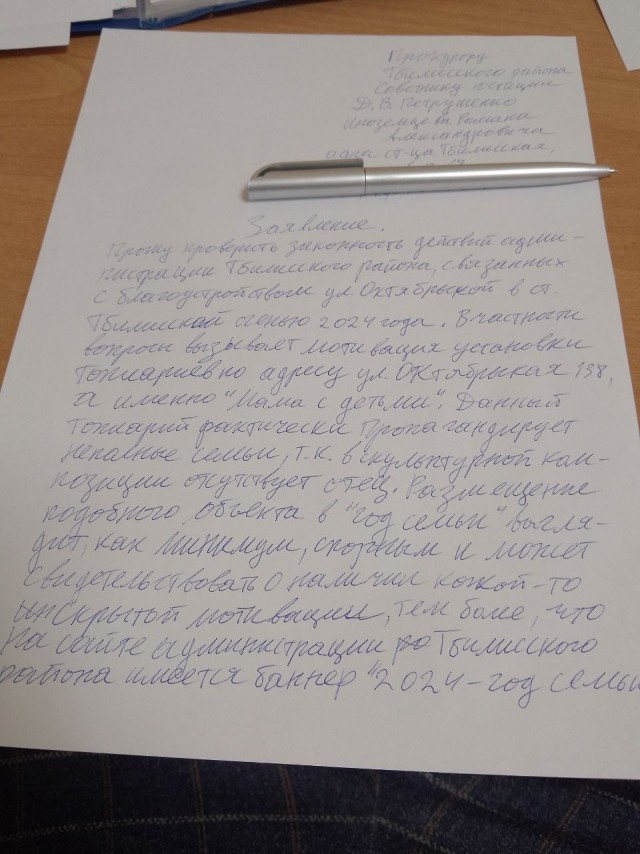 Прокурору
Тбилисского района
Советнику юстиции
Д.В. Петрушенко
Иноземцева Романа
Александровича
адрес ст-ца Тбилисская,
Заявление.
Прошу проверить законность действий адми-
нистрации Тбилисского района, связанных
с благоустройством ул. Октябрьской в ст.
Тбилисской осенью 2024 года. В частности
вопросы вызывает мотивация установки
топиариев по адресу ул. Октябрьская 138,
а именно "Мама с детьми". Данный
топиарий фактически пропагандирует
неполные семьи, т.к. в скульптурной ком-
позиции отсутствует отец. Размещение
подобного объекта в "год семьи" выгля-
дит, как минимум, спорным и может
свидетельствовать о наличии какой-то
скрытой мотивации, тем более, что
на сайте администрации Тбилисского
района имеется баннер "2024 - год семьи